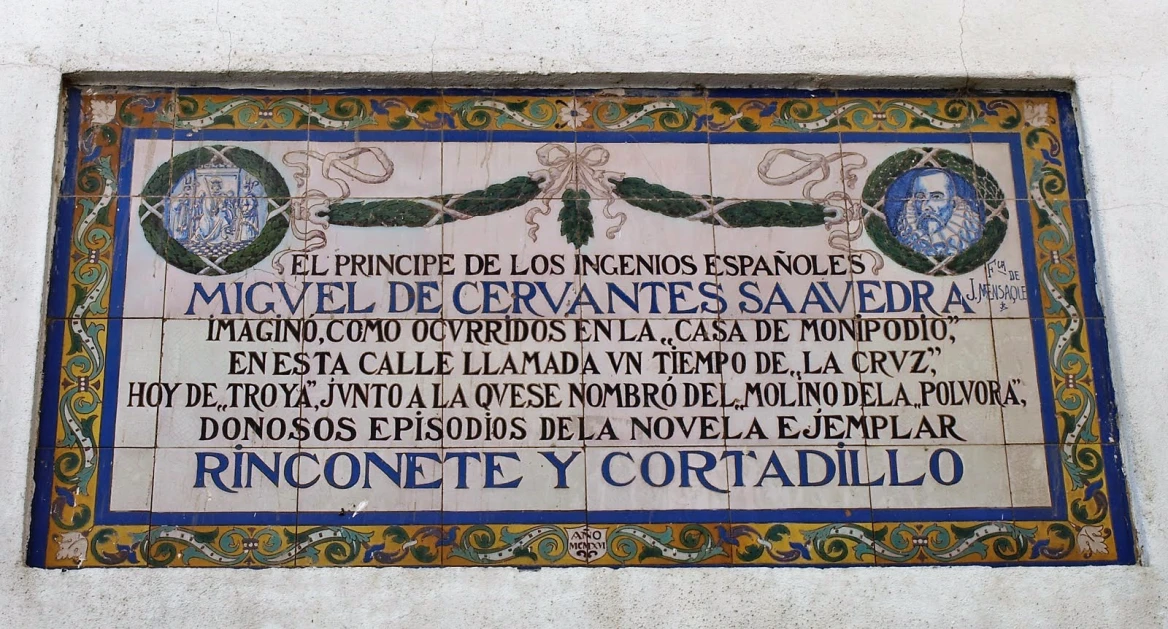 EL PRINCIPE DE LOS INGENIOS ESPAÑOLES
MIGVEL DE CERVANTES SAAVEDRA
IMAGINÓ, COMO OCVRRIDOS EN LA „CASA DE MONIPODIO”
EN ESTA CALLE LLAMADA VN TIEMPO DE „LA CRVZ”,
HOY DE „TROYA”, JVNTO A LA QVE SE NOMBRÓ DEL „MOLINO DE LA „POLVORA”,
DONOSOS EPISODIOS DE LA NOVELA EJEMPLAR
RINCONETE Y CORTADILLO
Fca DE
J. MENSAQUE
AÑO
MCMXVI